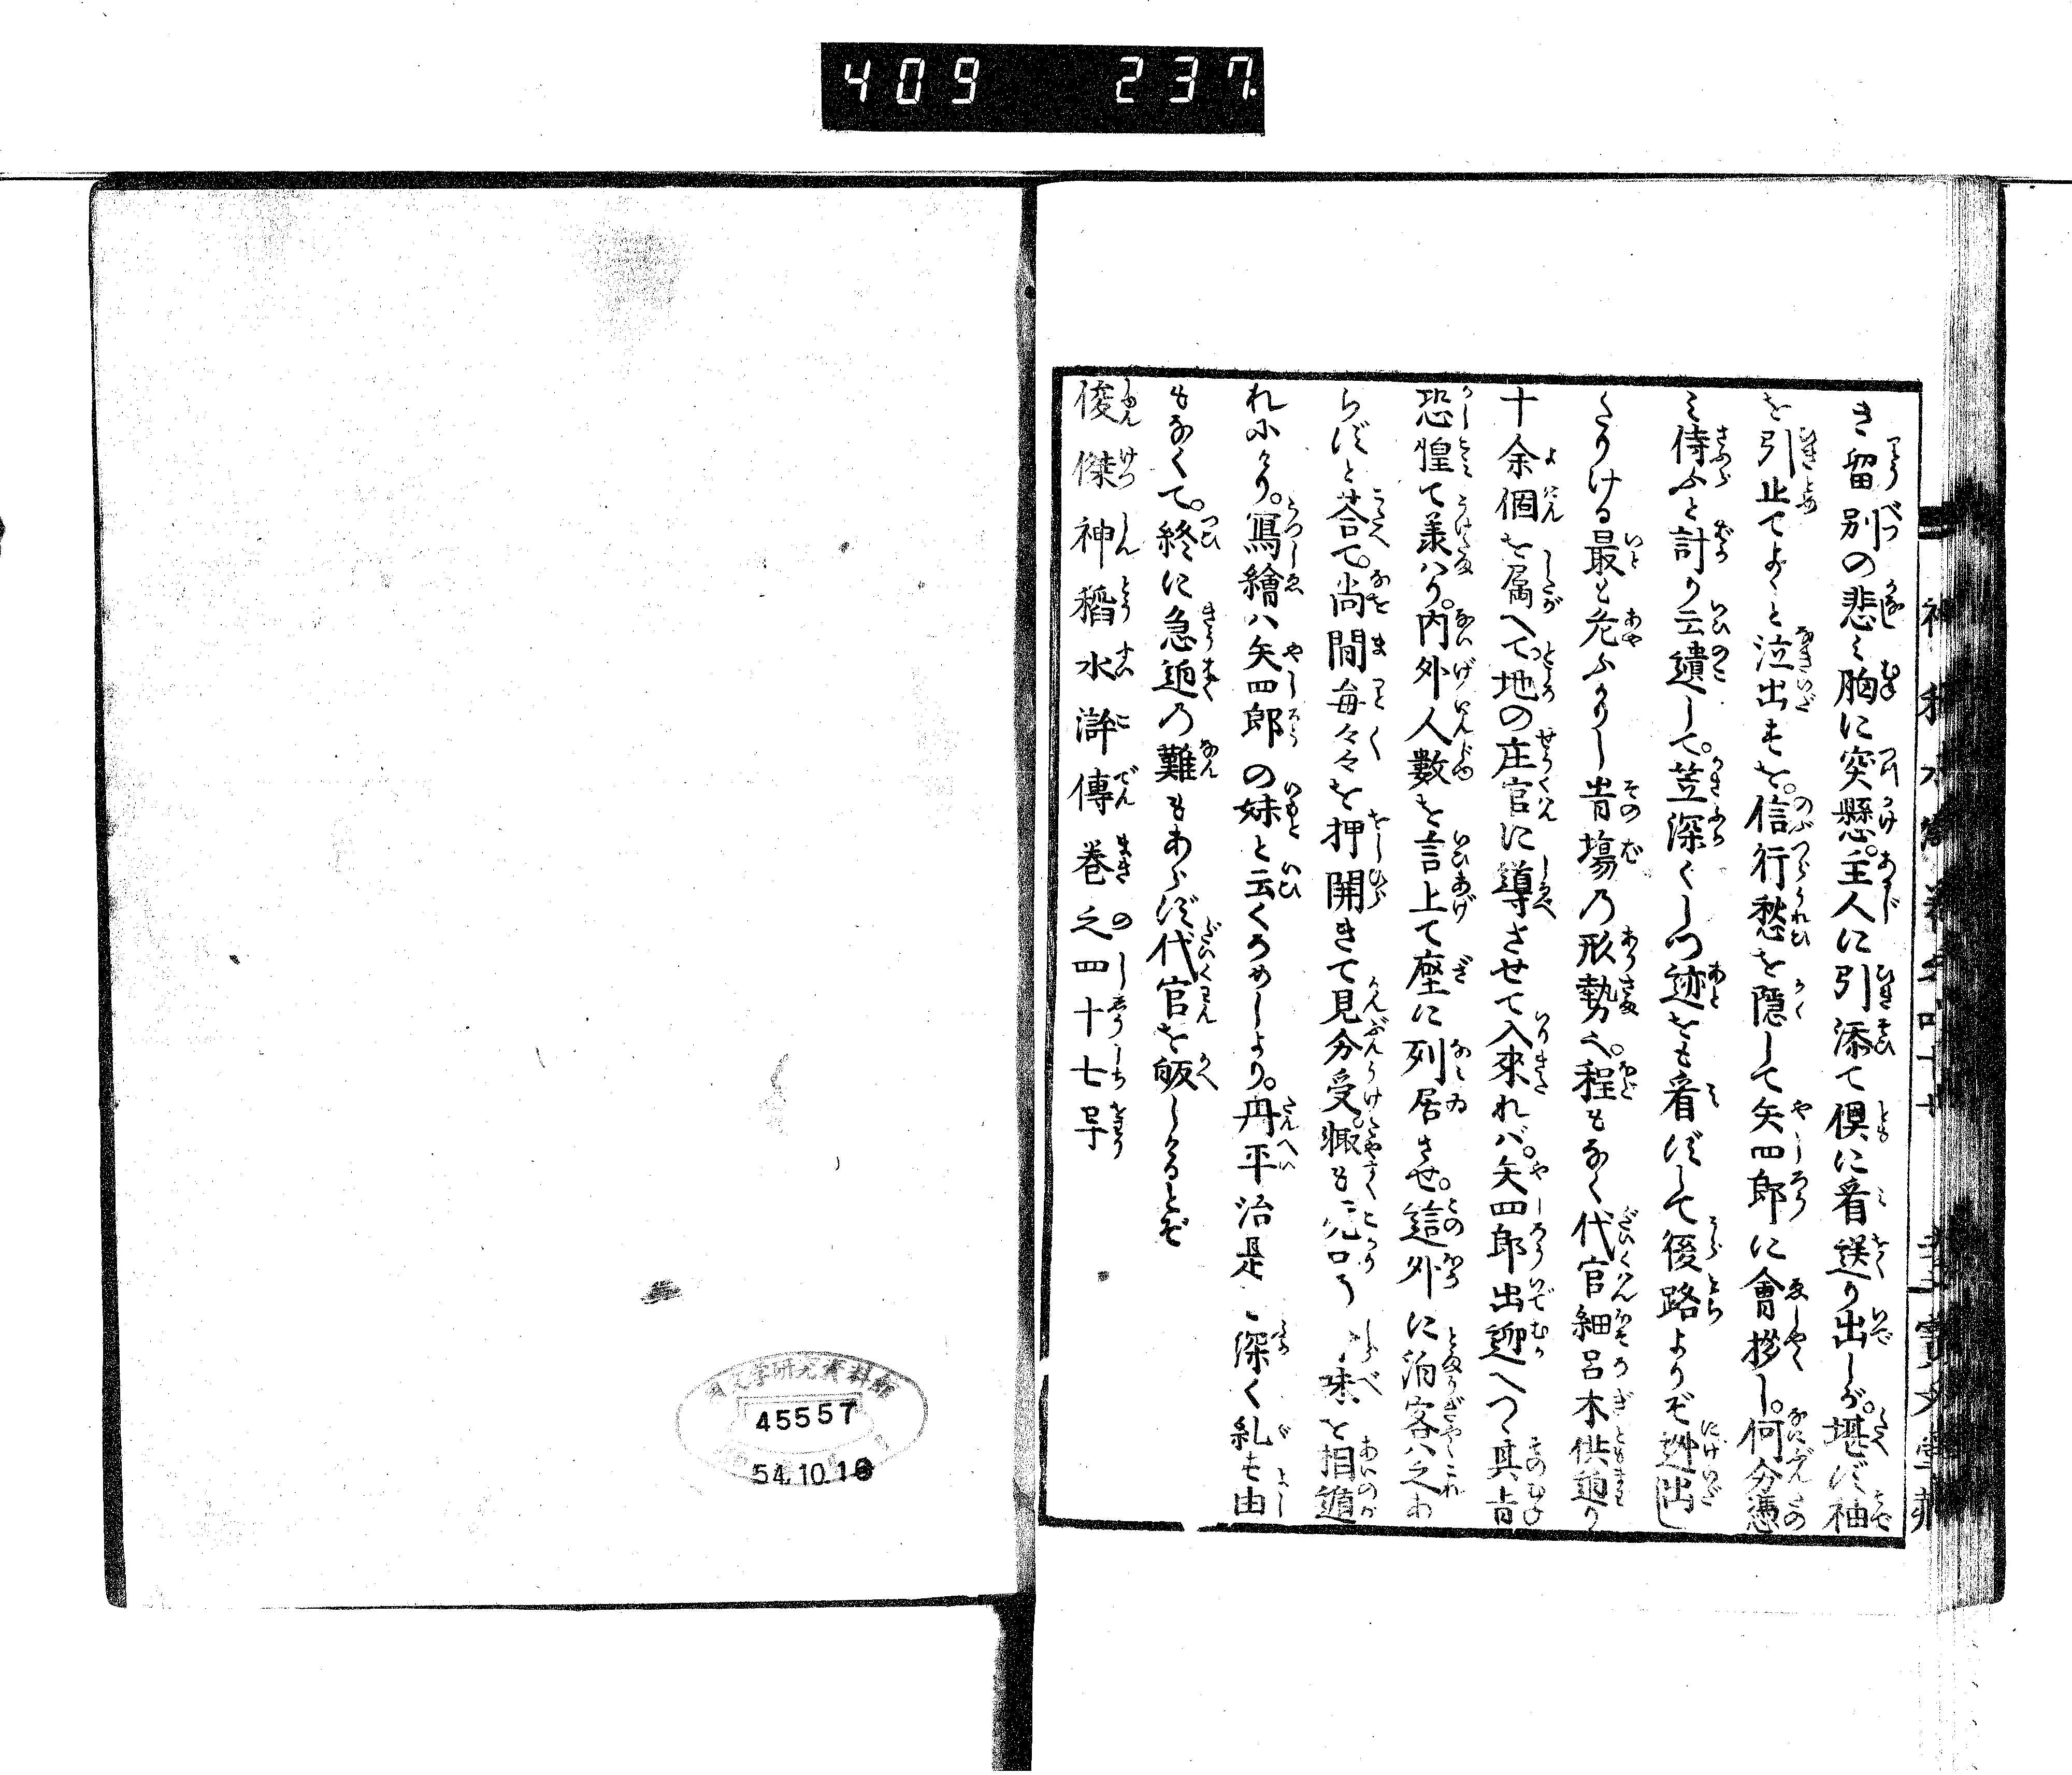 409 237.
き留別の悲ミ胸に突懸。主人に引添て倶に看送り出しが。堪ず袖
を引止てよゝと泣出すを。信行愁を隠して矢四郎に會拶し。何分憑
ミ侍ふと計り云遺して。笠深くしつ迹をも看ずして後路よりぞ迯出し
たりける最も危ふかりし当場の形勢也。程もなく代官細呂木供廻り
十余個を属へて。地の庄官に導させて入来れバ。矢四郎出迎へつゝ其旨
恐惶て義ハり。内外人数を言上て座に列居させ。這外に泊客ハ之あ
らずと荅て。尚間毎々々を押開きて見分受。輙も
を相遁
れにけり。寫繪ハ矢四郎の妹と云くろめしより。丹平治是
深く糺す由
もなくて。終に急迫の難もあらず代官を皈しけるとぞ
俊傑神稲水滸傳巻之四十七号
45557
54.10.16